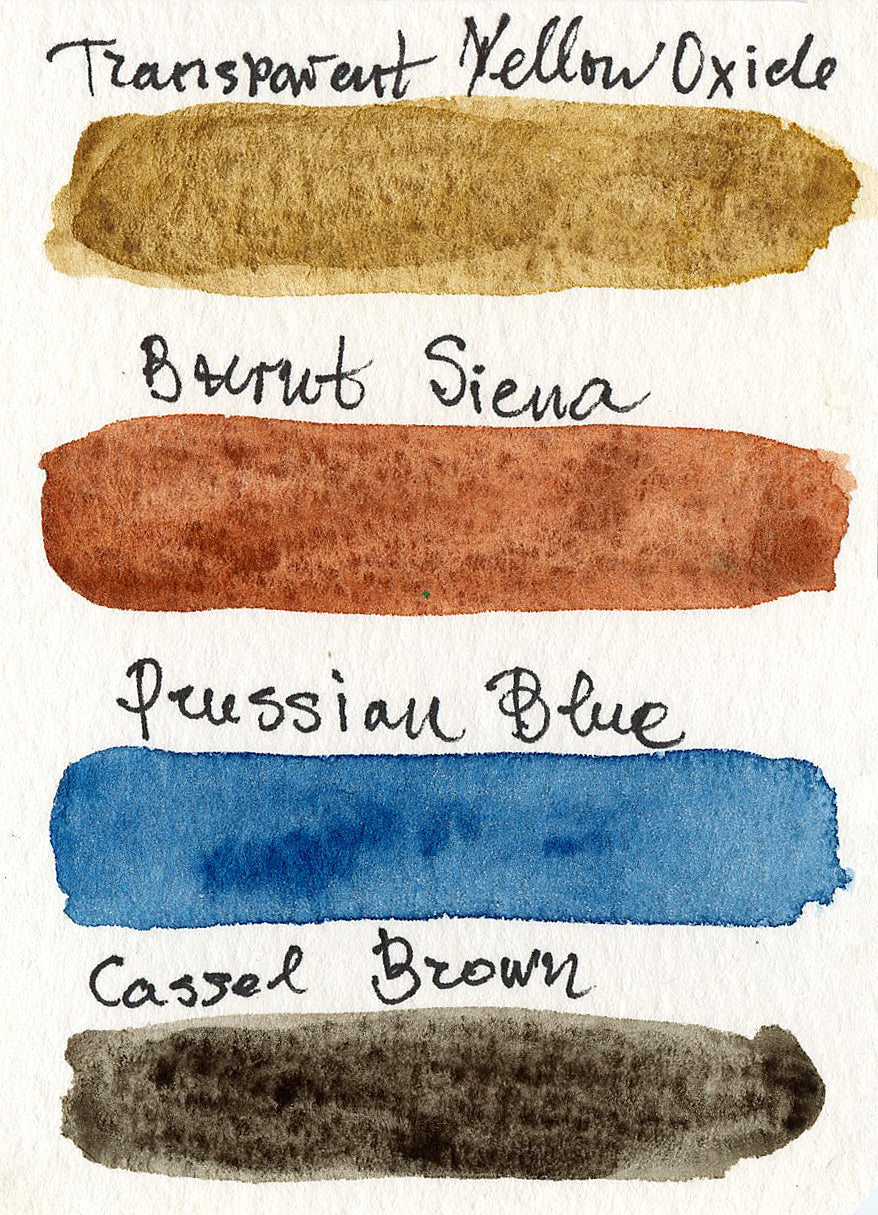 Transparent Yellow Oxide
Burnt Siena
Prussian Blue
Cassel Brown